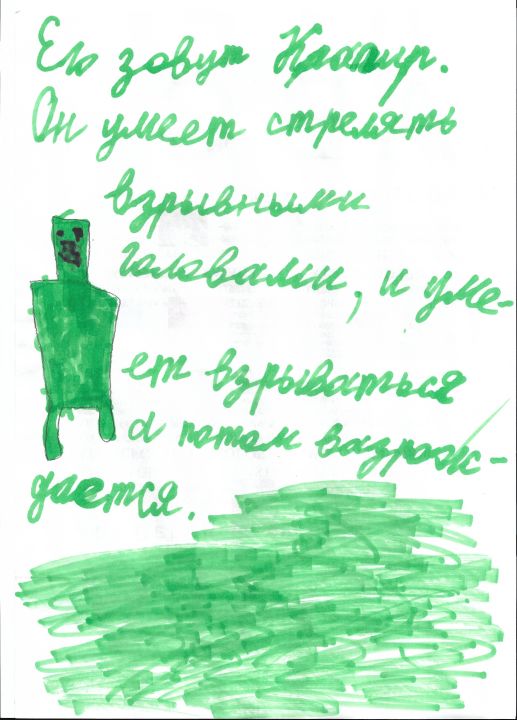 Его зовут Крапир.
Он умеет стрелять
взрывными
головами, и уме-
ет взрываться
а потом вазрож-
дается.